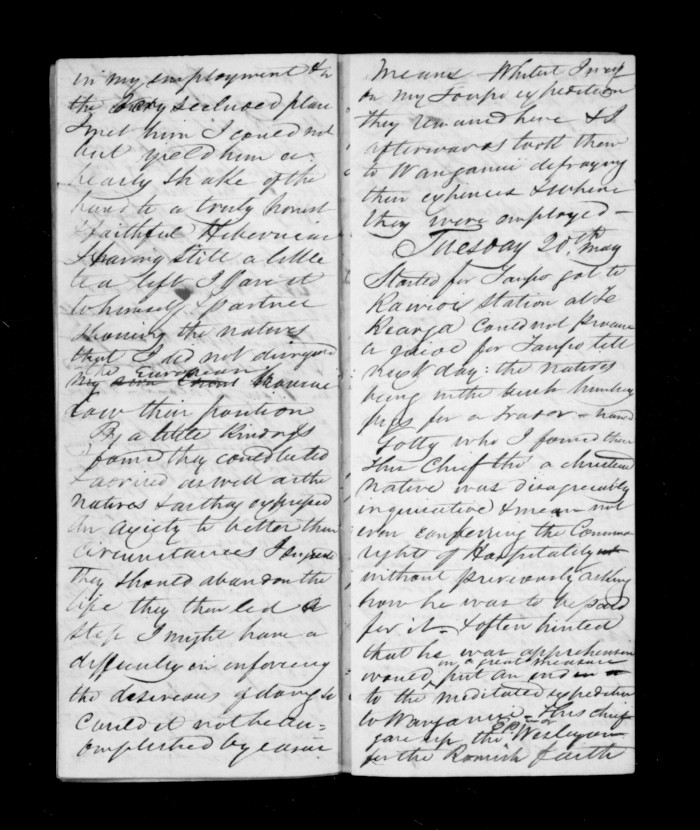 in my employment & in
the very secluded place
I met him I could not
but yield him a
hearty shake of the
hand to a truly honest
& faithful Hibernian
& having still a little
tea left I gave it
to himself & partner
showing the natives
that I did not disregard
the European
my own however
low their position
By a little kindness
found they contributed
& as the natives
natives & as they expressed
an anxiety to better their
circumstances I
they should abandon the
life they then led a
step I might have a
difficulty in enforcing
the of doing so
could it not be ac=
complished by easier
means Whilst I was
on my Taupo expedition
they remained here & I
afterwards took them
to Wanganui defraying
their expences & where
they were employed —
Tuesday 20th May
Started for Taupo got to
station at Te
Kearga could not procure
a guide for Taupo till
next day: the natives
being in the bush hunting
pigs for a Trader named
Lotty who I found there
This Chief tho' a christian
native was disagreeably
inquisitive & mean not
even conferring the Common
rights of Hospitality
without previously asking
how he was to be paid
for it — & often hinted
that he was apprehensive
in a great measure
would put an end
to the meditated expedition
to Wanganui — This chief
gave up the Wesleyan
for the Romish faith